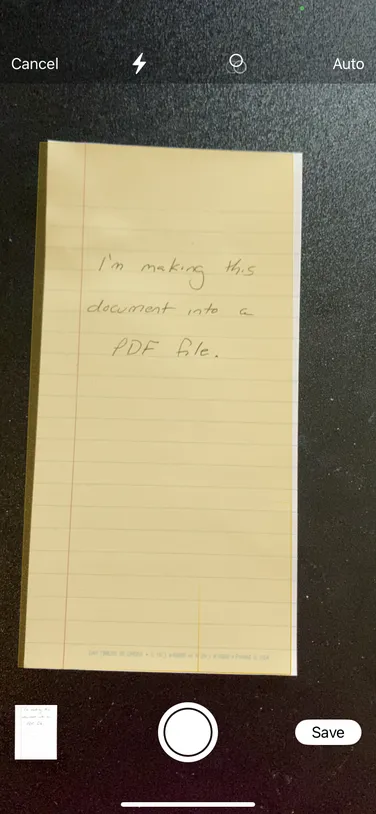 Cancel
Auto
I'm making this
document into a
PDF file.
Save